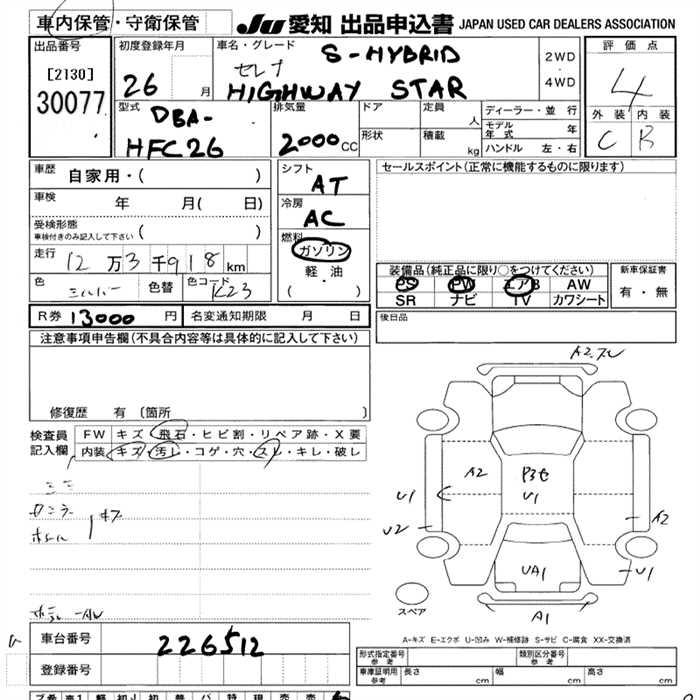 車内保管・守衛保管 JU 愛知 出品申込書 JAPAN USED CAR DEALERS ASSOCIATION
出品番号 初度登録年月 車名・グレード S-HYBRID 2WD 評価点
[2130] セレナ ・ 4
30077 26 月 HIGHWAY STAR 4WD
外装 内装
C B
型式 排気量 ドア 定員 人 ディーラー・並行
DBA- モデル年式 年
HFC26 2000 CC 形状 積載 kg ハンドル 左・右
車歴 自家用・( ) シフト AT セールスポイント(正常に機能するものに限ります)
車検 年 月( 日) 冷房 AC
受検形態
車検付きのみ記入して下さい ( )
燃料 ガソリン
走行 12万3千918km 軽・油
( ・ )
色 シルバー 色替 色コード K23
装備品(純正品に限り○をつけてください) 新車保証書
PS PW エアB AW 有・無
SR ナビ TV カワシート
R券 13000 円 名変通知期限 月 日 後日品
注意事項申告欄(不具合内容等は具体的に記入して下さい)
修復歴 有 〔箇所 〕
検査員記入欄 FW キズ・飛石・ヒビ割・リペア跡・X要
内装 キズ・汚レ・コゲ・穴・スレ・キレ・破レ
キズ
A2
A2 P3
U1 U1
U2 A2
UA1 U1
A1
スペア
A-キズ E-エクボ U-凹み W-補修跡 S-サビ C-腐食 XX-交換済
車台番号 226512
登録番号
形式指定番号 参考 類別区分番号 参考
車庫証明用 参考 長さ cm 幅 cm 高さ cm